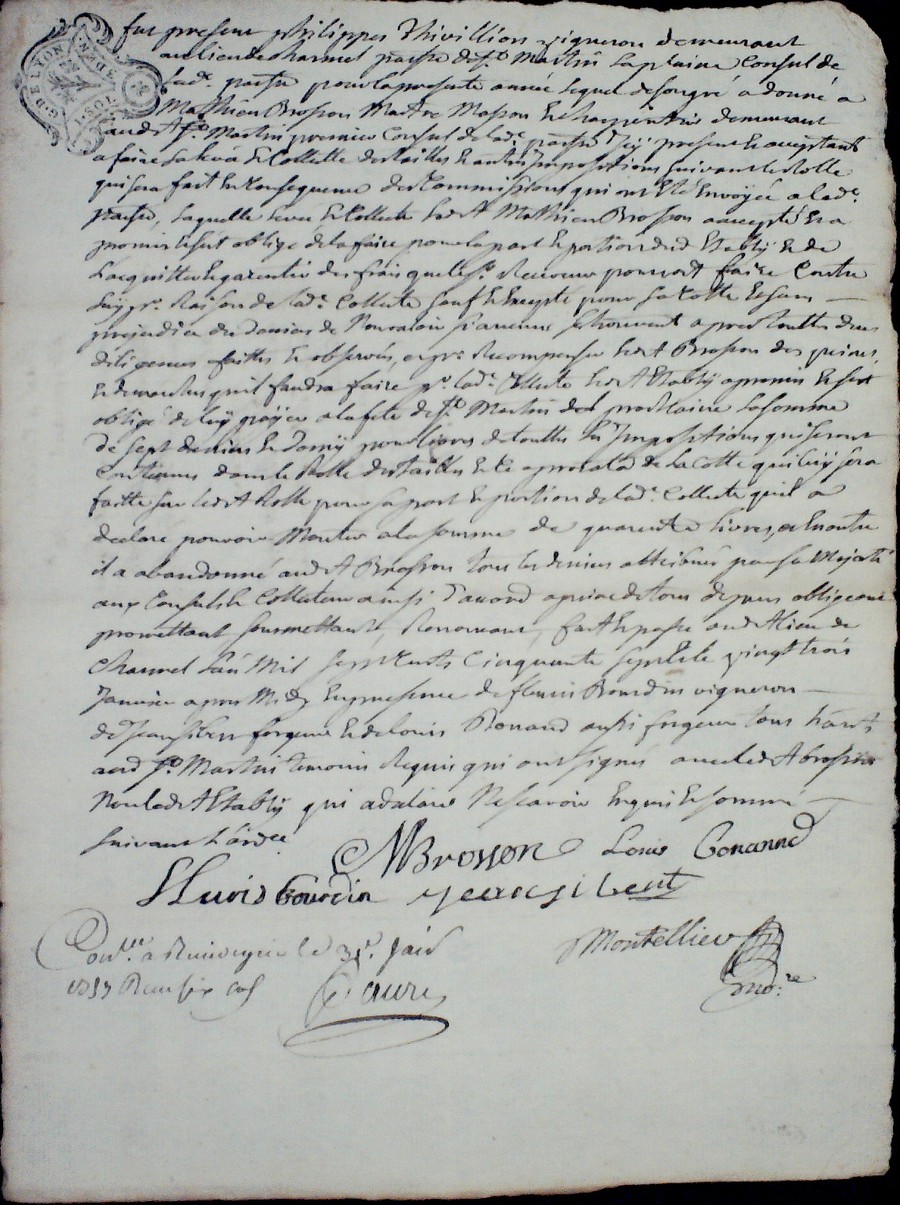 G. DE LYON
fut present philippes Thivillion vigneron demeurant
au lieu de Charmel parsse de St Martin la plaine Consul de
lade. parsse pour la presente année lequel de son gré a donné a
Mathieu Brosson Maitre Masson et charpentier demeurant
aud St Martin premier Consul de lade. parsse icy present et acceptant
a faire la levée et Collette des tailles et autres Impositions suivant le Rolle
qui sera fait en Consequence des Commissions qui ont été envoyée a lade.
parsse, laquelle levée et Collette led. Mathieu Brosson a accepté et a
promis et s'est oblige de la faire pour la part et portion dud et de
l'acquitter et garentir des frais que les Receveurs pourront faire Contre
luy pr. Raison de lade. Collette sauf et Excepté pour sa Cotte et sans
prejudice des deniers de s'aucuns se trouvent apres touttes deues
diligences faittes et observés, et pr. Recompenser led. Brosson des peines,
et demarches qu'il faudra faire pr. lade. Collette led. a promis et s'est
obligé de luy payer a la fete de St Martin prochaine la somme
de sept deniers et demy pour livres de touttes les Impositions qui seront
Contenues dans le Rolle des tailles et ce a prorata de la Cotte qui luy sera
faitte sur led. Rolle pour sa part et portion de lade. Collecte qu'il a
declaré pouvoir Monter a la somme de quarente livres, et en outre
il a abandonné aud. Brosson tous les deniers attribués par sa Majesté
aux Consuls et Collecteurs ainsi d'accord a peine de tous depens obligeant
promettant soumettants, Renonceant, fait et passé aud. lieu de
Charmel l'an Mil sept Cents Cinquante sept et le vingt trois
Janvier apres Midy En presence de fleuris Bourdin vigneron
de Jean gilbert forgeur et de Louis Bonnand aussi forgeur tous hants
aud St Martin temoins Requis qui ont signés avec led. Brosson
Non led. qui a declaré Ne scavoir Enquis et sommé
suivant l'ordce
MBrosson Louis Bonannd
Fluris bourdin Jean gilbert
Conllé. a Rivedegier le 31e. janr
1757 Reçu six sols
Faure
Montellier
nore